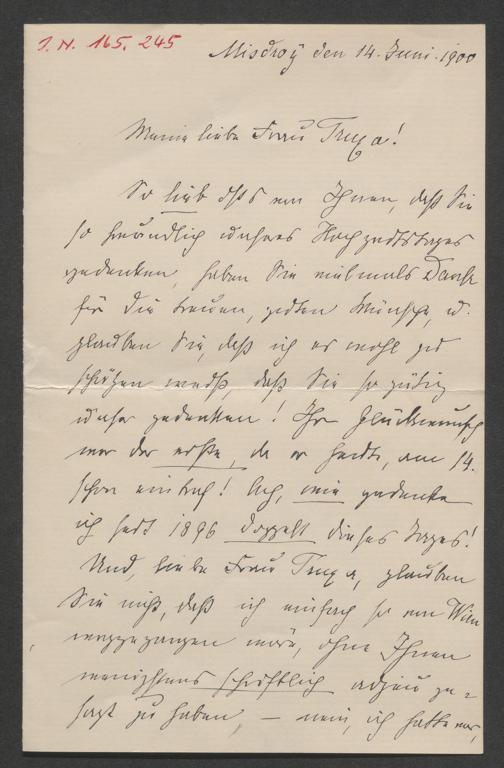 J. N. 165.245
Misdroy den 14. Juni 1900
Meine liebe Frau Truxa!
So lieb ist es von Ihnen, daß Sie
so freundlich unseres Hochzeitstages
gedenken, haben Sie vielmals Dank
für die treuen, guten Wünsche, u.
glauben Sie, daß ich es wohl zu
schätzen weiß, daß Sie so gütig
unser gedenken! Ihr Glückwunsch
war der erste, da er heute, am 14.
schon eintraf! Ach, wie gedenke
ich seit 1896 doppelt dieses Tages!
Und, liebe Frau Truxa, glauben
Sie nicht, daß ich einfach so von Wien
weggegangen wäre, ohne Ihnen
wenigstens schriftlich adjeu ge-
sagt zu haben, – nein, ich hatte vor,